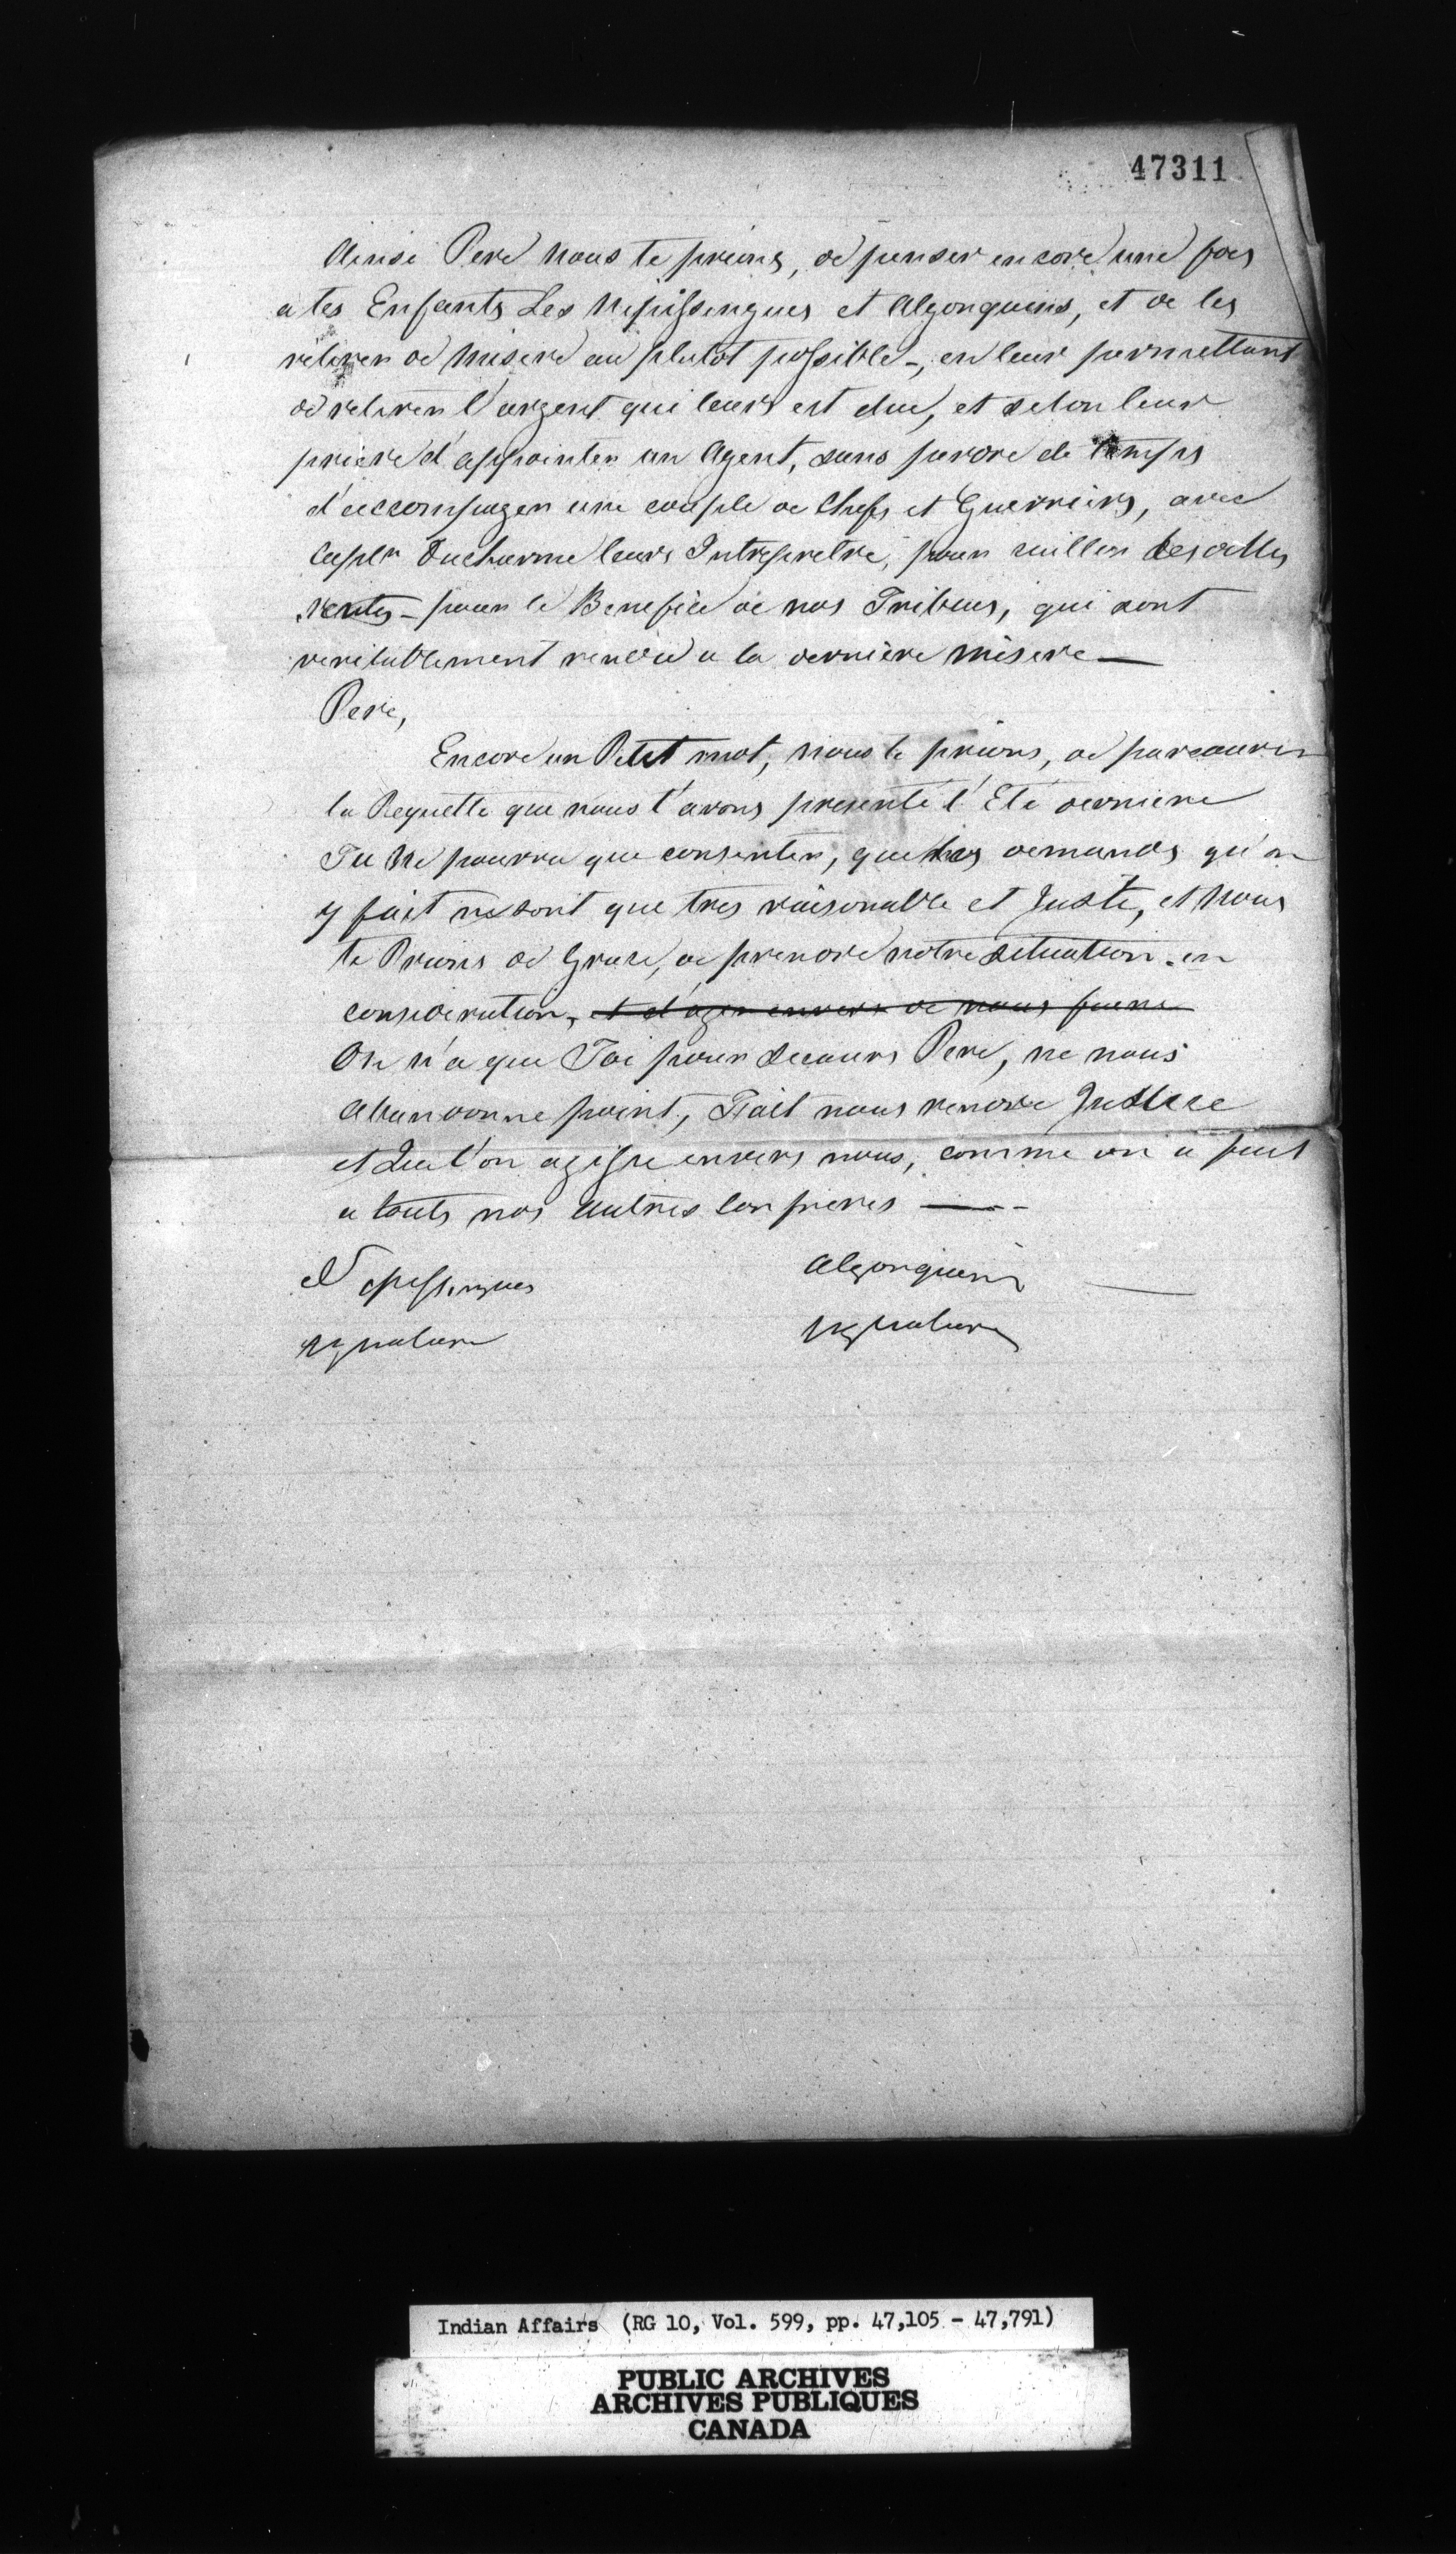 47311
Ainsi Pere nous te prions, de penser encore une fois
a tes Enfants Les Nepissingues et Algonquins, et de les
retirer de misere au plutot possible -, en leur permettant
de retirer l'argent qui leurs est due, et selon leur
priere d'appointer un Agent, sans perdre de temps
d'accompagner une couple de Chefs et Guerriers, avec
Capt Ducharme leurs Interpretre, pour cuillir les dittes
rentes - pour le Benefice de nos Tribues, qui sont
veritablement rendu a la derniere misere —
Pere,
Encore un Petit mot, nous te prions, de parcourir
la Requette que nous t'avons presenté l'Eté derniere
Tu Ne pourra que consenter, que les demands qu'on
y fait ne sont que tres raisonable et Juste, et Nous
te Prions de Grace, de prendre notre situation en
consideration, et d'agir envers de nous
On n'a que Toi pour secours Pere, ne nous
abandonne point, Fait nous rendre Justice
et Que l'on agisse envers nous, comme on a fait
a touts nos autres Confreres —
Nepissingues
signature
Algonquins
signature
Indian Affairs (RG 10, Vol. 599, pp. 47,105 - 47,791)
PUBLIC ARCHIVES
ARCHIVES PUBLIQUES
CANADA